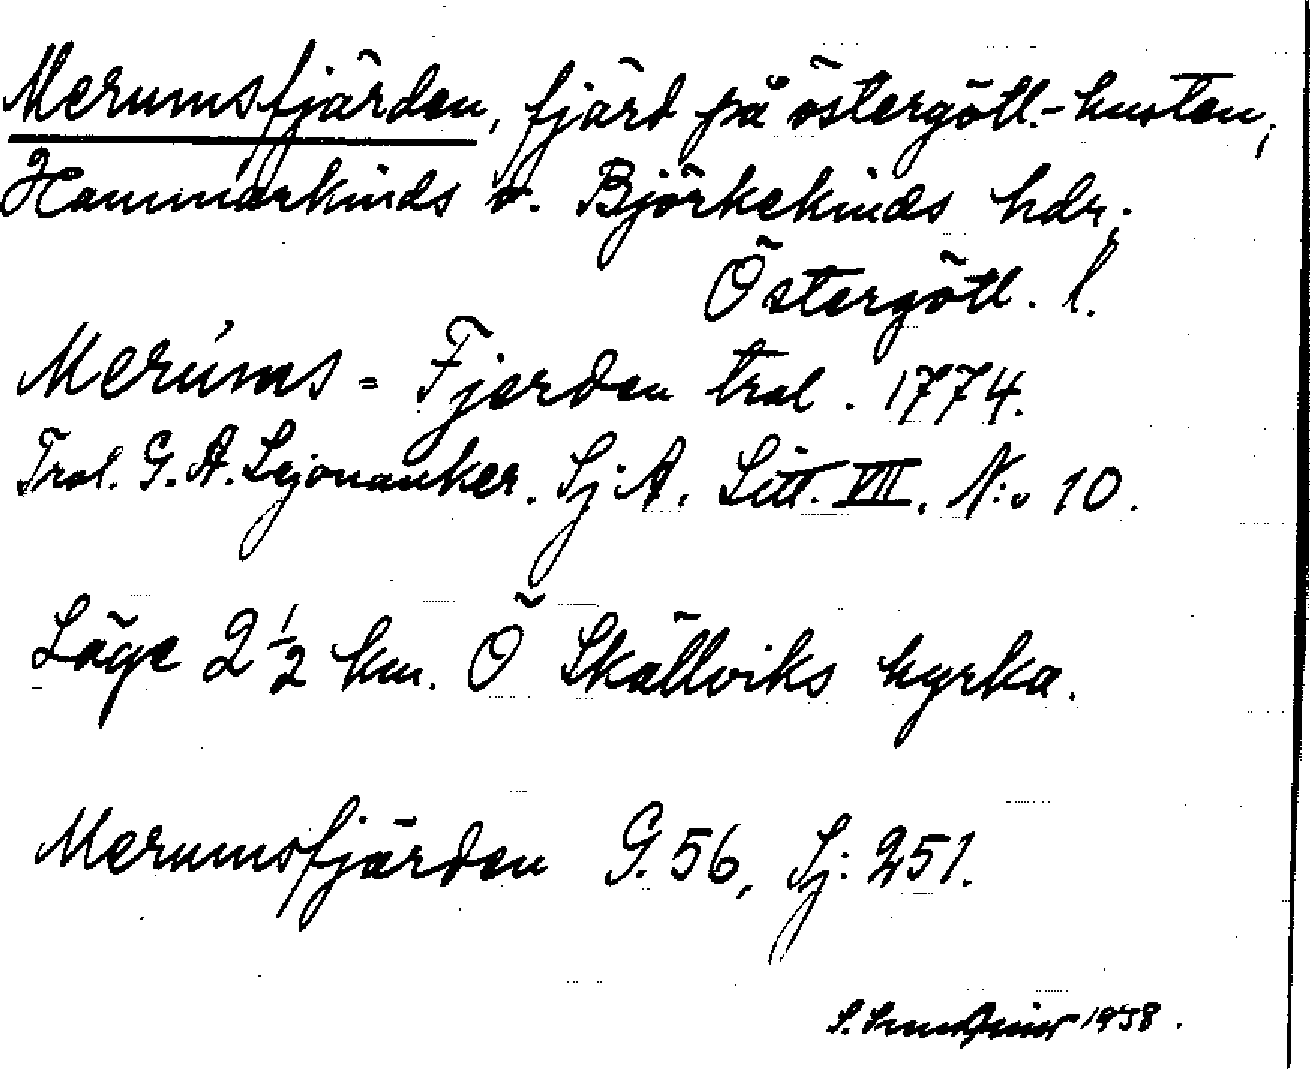 Merumsfjärden, fjärd på östergötl.-kusten,
Hammarkinds o. Björkekinds hdr,
Östergötl. l.
Merúms = Fjerden trol. 1774.
Trol. G. A. Lejonanker. Sj: A. Litt. VII. N:o 10.
Läge 2 1/2 km. Ö Skällviks kyrka.
Merumsfjärden G. 56, Sj: 251.
1938.